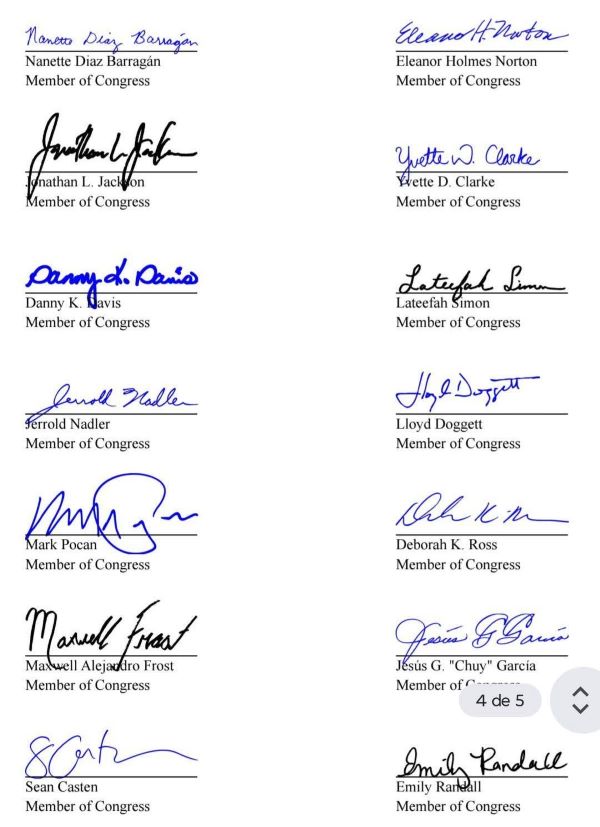 Nanette Diaz Barragán
Nanette Diaz Barragán
Member of Congress
Eleanor H. Norton
Eleanor Holmes Norton
Member of Congress
Jonathan L. Jackson
Jonathan L. Jackson
Member of Congress
Yvette D. Clarke
Yvette D. Clarke
Member of Congress
Danny K. Davis
Danny K. Davis
Member of Congress
Lateefah Simon
Lateefah Simon
Member of Congress
Jerrold Nadler
Jerrold Nadler
Member of Congress
Lloyd Doggett
Lloyd Doggett
Member of Congress
Mark Pocan
Member of Congress
Deborah K. Ross
Member of Congress
Maxwell Frost
Maxwell Alejandro Frost
Member of Congress
Jesús G García
Jesús G. "Chuy" García
Member of Congress
S Casten
Sean Casten
Member of Congress
Emily Randall
Emily Randall
Member of Congress
4 de 5